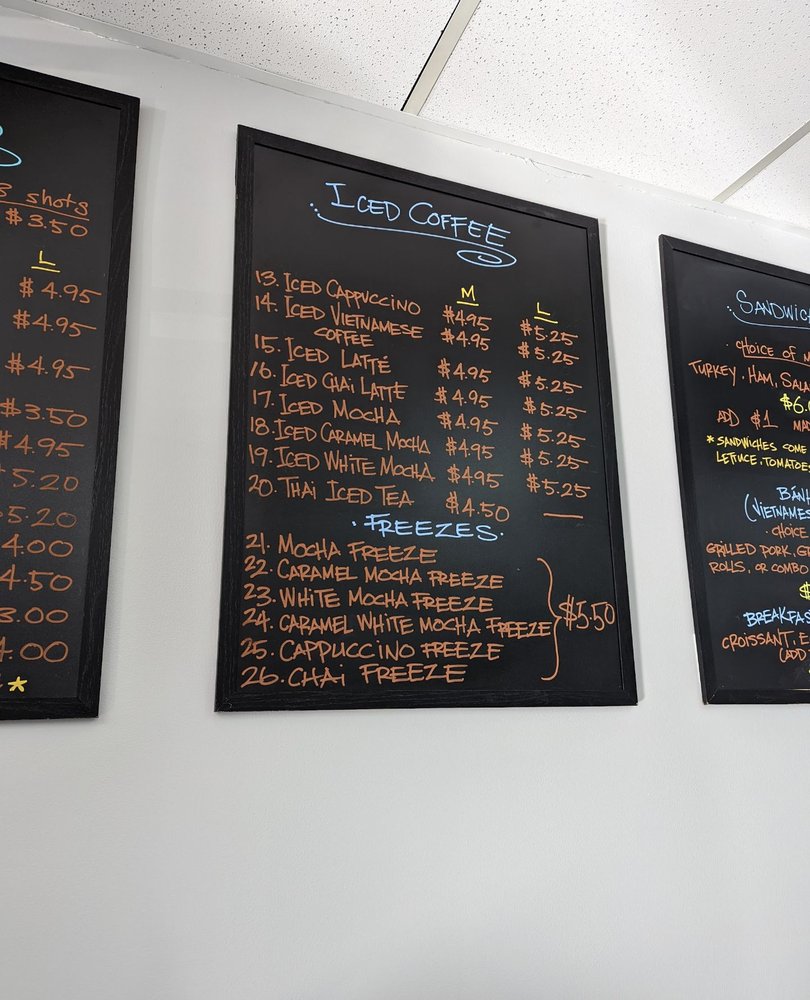 3 shots
$3.50
L
$4.95
$4.95
$4.95
$3.50
$4.95
$5.20
$5.20
4.00
4.50
3.00
4.00
ICED COFFEE
M L
13. ICED CAPPUCCINO $4.95 $5.25
14. ICED VIETNAMESE $4.95 $5.25
COFFEE
15. ICED LATTÉ $4.95 $5.25
16. ICED CHAI LATTE $4.95 $5.25
17. ICED MOCHA $4.95 $5.25
18. ICED CARAMEL MOCHA $4.95 $5.25
19. ICED WHITE MOCHA $4.95 $5.25
20. THAI ICED TEA $4.50 —
· FREEZES ·
21. MOCHA FREEZE
22. CARAMEL MOCHA FREEZE
23. WHITE MOCHA FREEZE
24. CARAMEL WHITE MOCHA FREEZE $5.50
25. CAPPUCCINO FREEZE
26. CHAI FREEZE
SANDWICH
· CHOICE OF
TURKEY, HAM, SALA
$6.
ADD $1
* SANDWICHES COME
LETTUCE, TOMATOES
BÁNH
(VIETNAMES
· CHOICE
GRILLED PORK,
ROLLS, OR COMBO
$
BREAKFAS
CROISSANT, E
(ADD